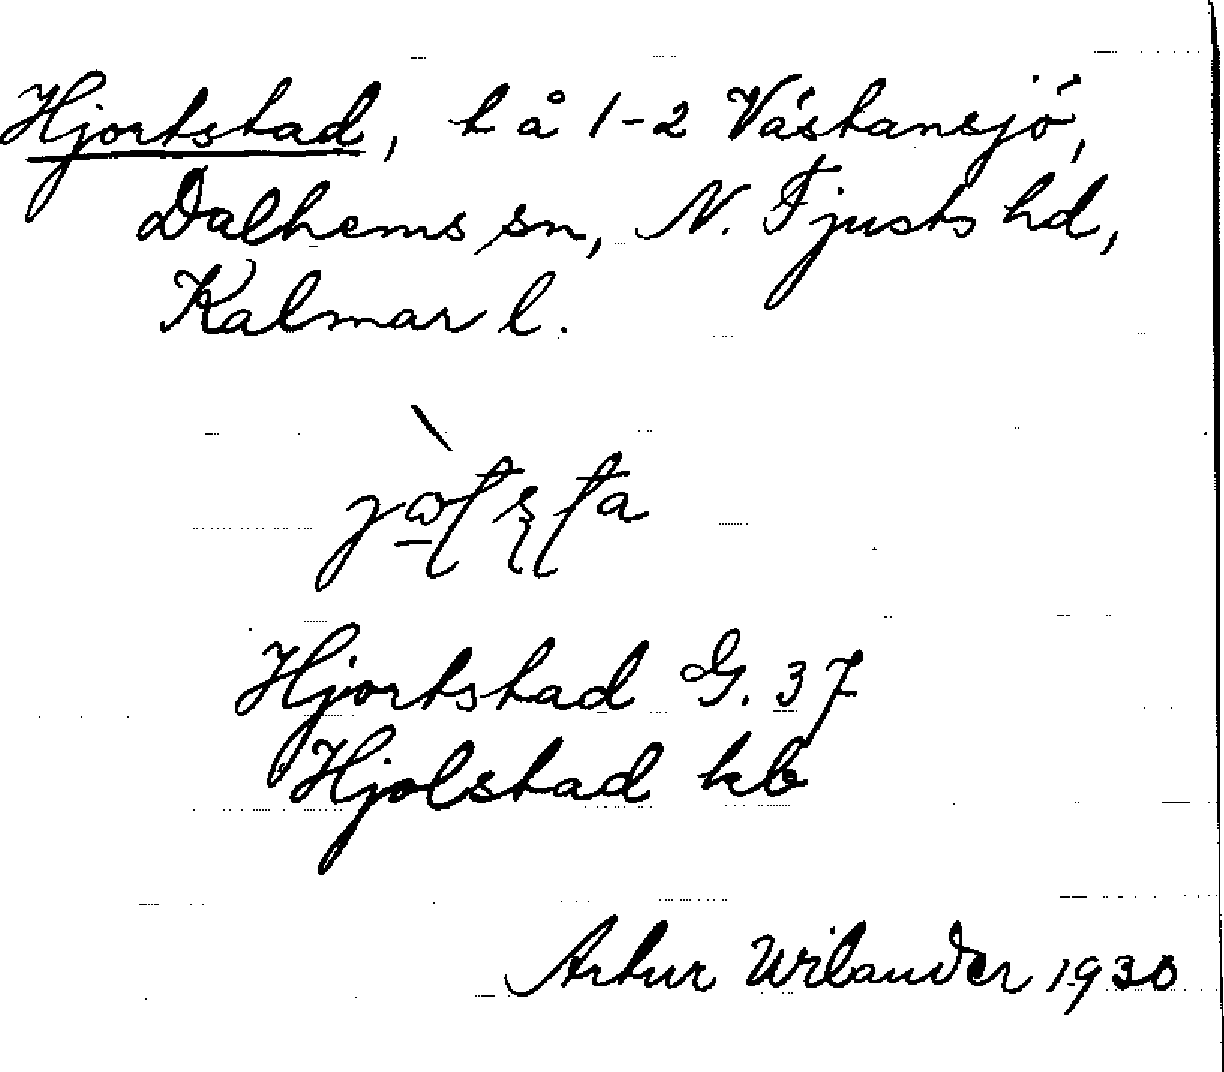 Hjortstad, t å 1-2 Västansjö,
Dalhems sn, N. Tjusts hd,
Kalmar l.
Hjortstad G. 37
Hjolstad kb
Artur Wilander 1930